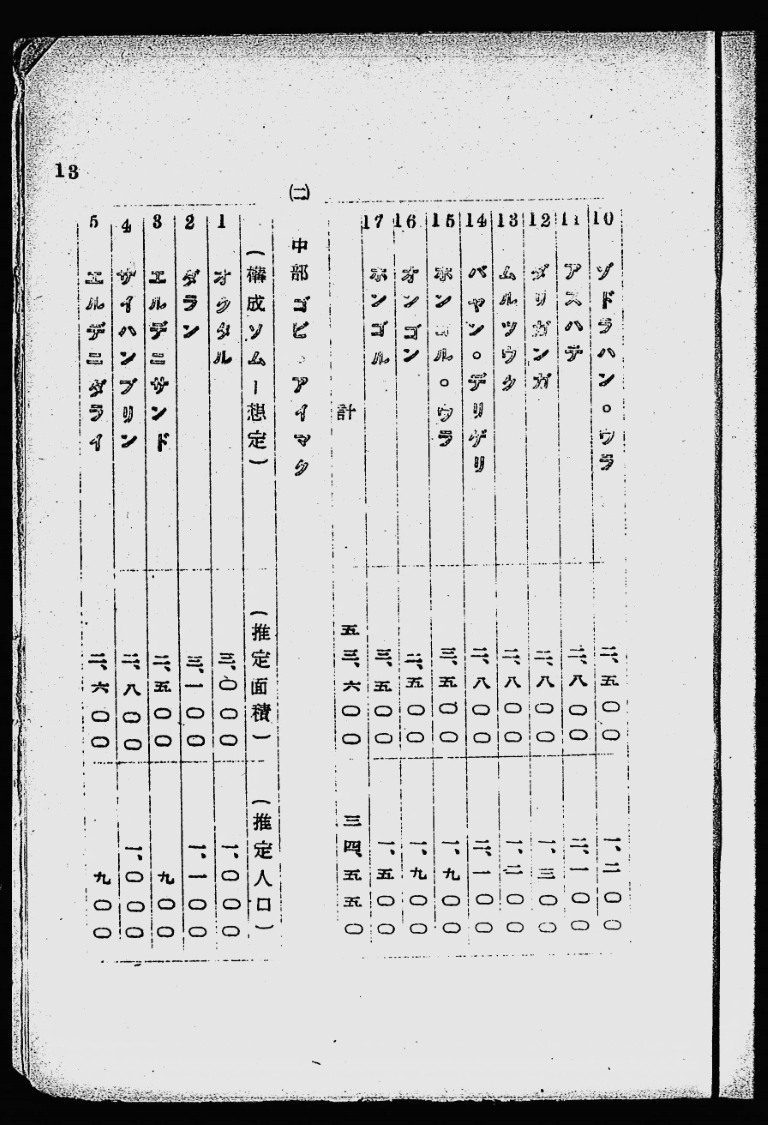 10 ゾドラハン。ウラ 二、五〇〇 一、二〇〇
11 アスハテ 二、八〇〇 二、一〇〇
12 ダリガンガ 二、八〇〇 一、三〇〇
13 ムルツウク 二、八〇〇 一、二〇〇
14 バヤン。デリゲリ 二、八〇〇 二、一〇〇
15 ホンゴル。ウラ 三、五〇〇 一、九〇〇
16 オンゴン 二、五〇〇 一、九〇〇
17 ホンゴル 三、五〇〇 一、五〇〇
計 五三、六〇〇 三四、五五〇
(二) 中部ゴビ、アイマク
(構成ソムー想定) (推定面積) (推定人口)
1 オクタル 三、〇〇〇 一、〇〇〇
2 ダラン 三、一〇〇 一、一〇〇
3 エルデニサンド 二、五〇〇 九〇〇
4 サイハンブリン 二、八〇〇 一、〇〇〇
5 エルデニダライ 二、六〇〇 九〇〇
13